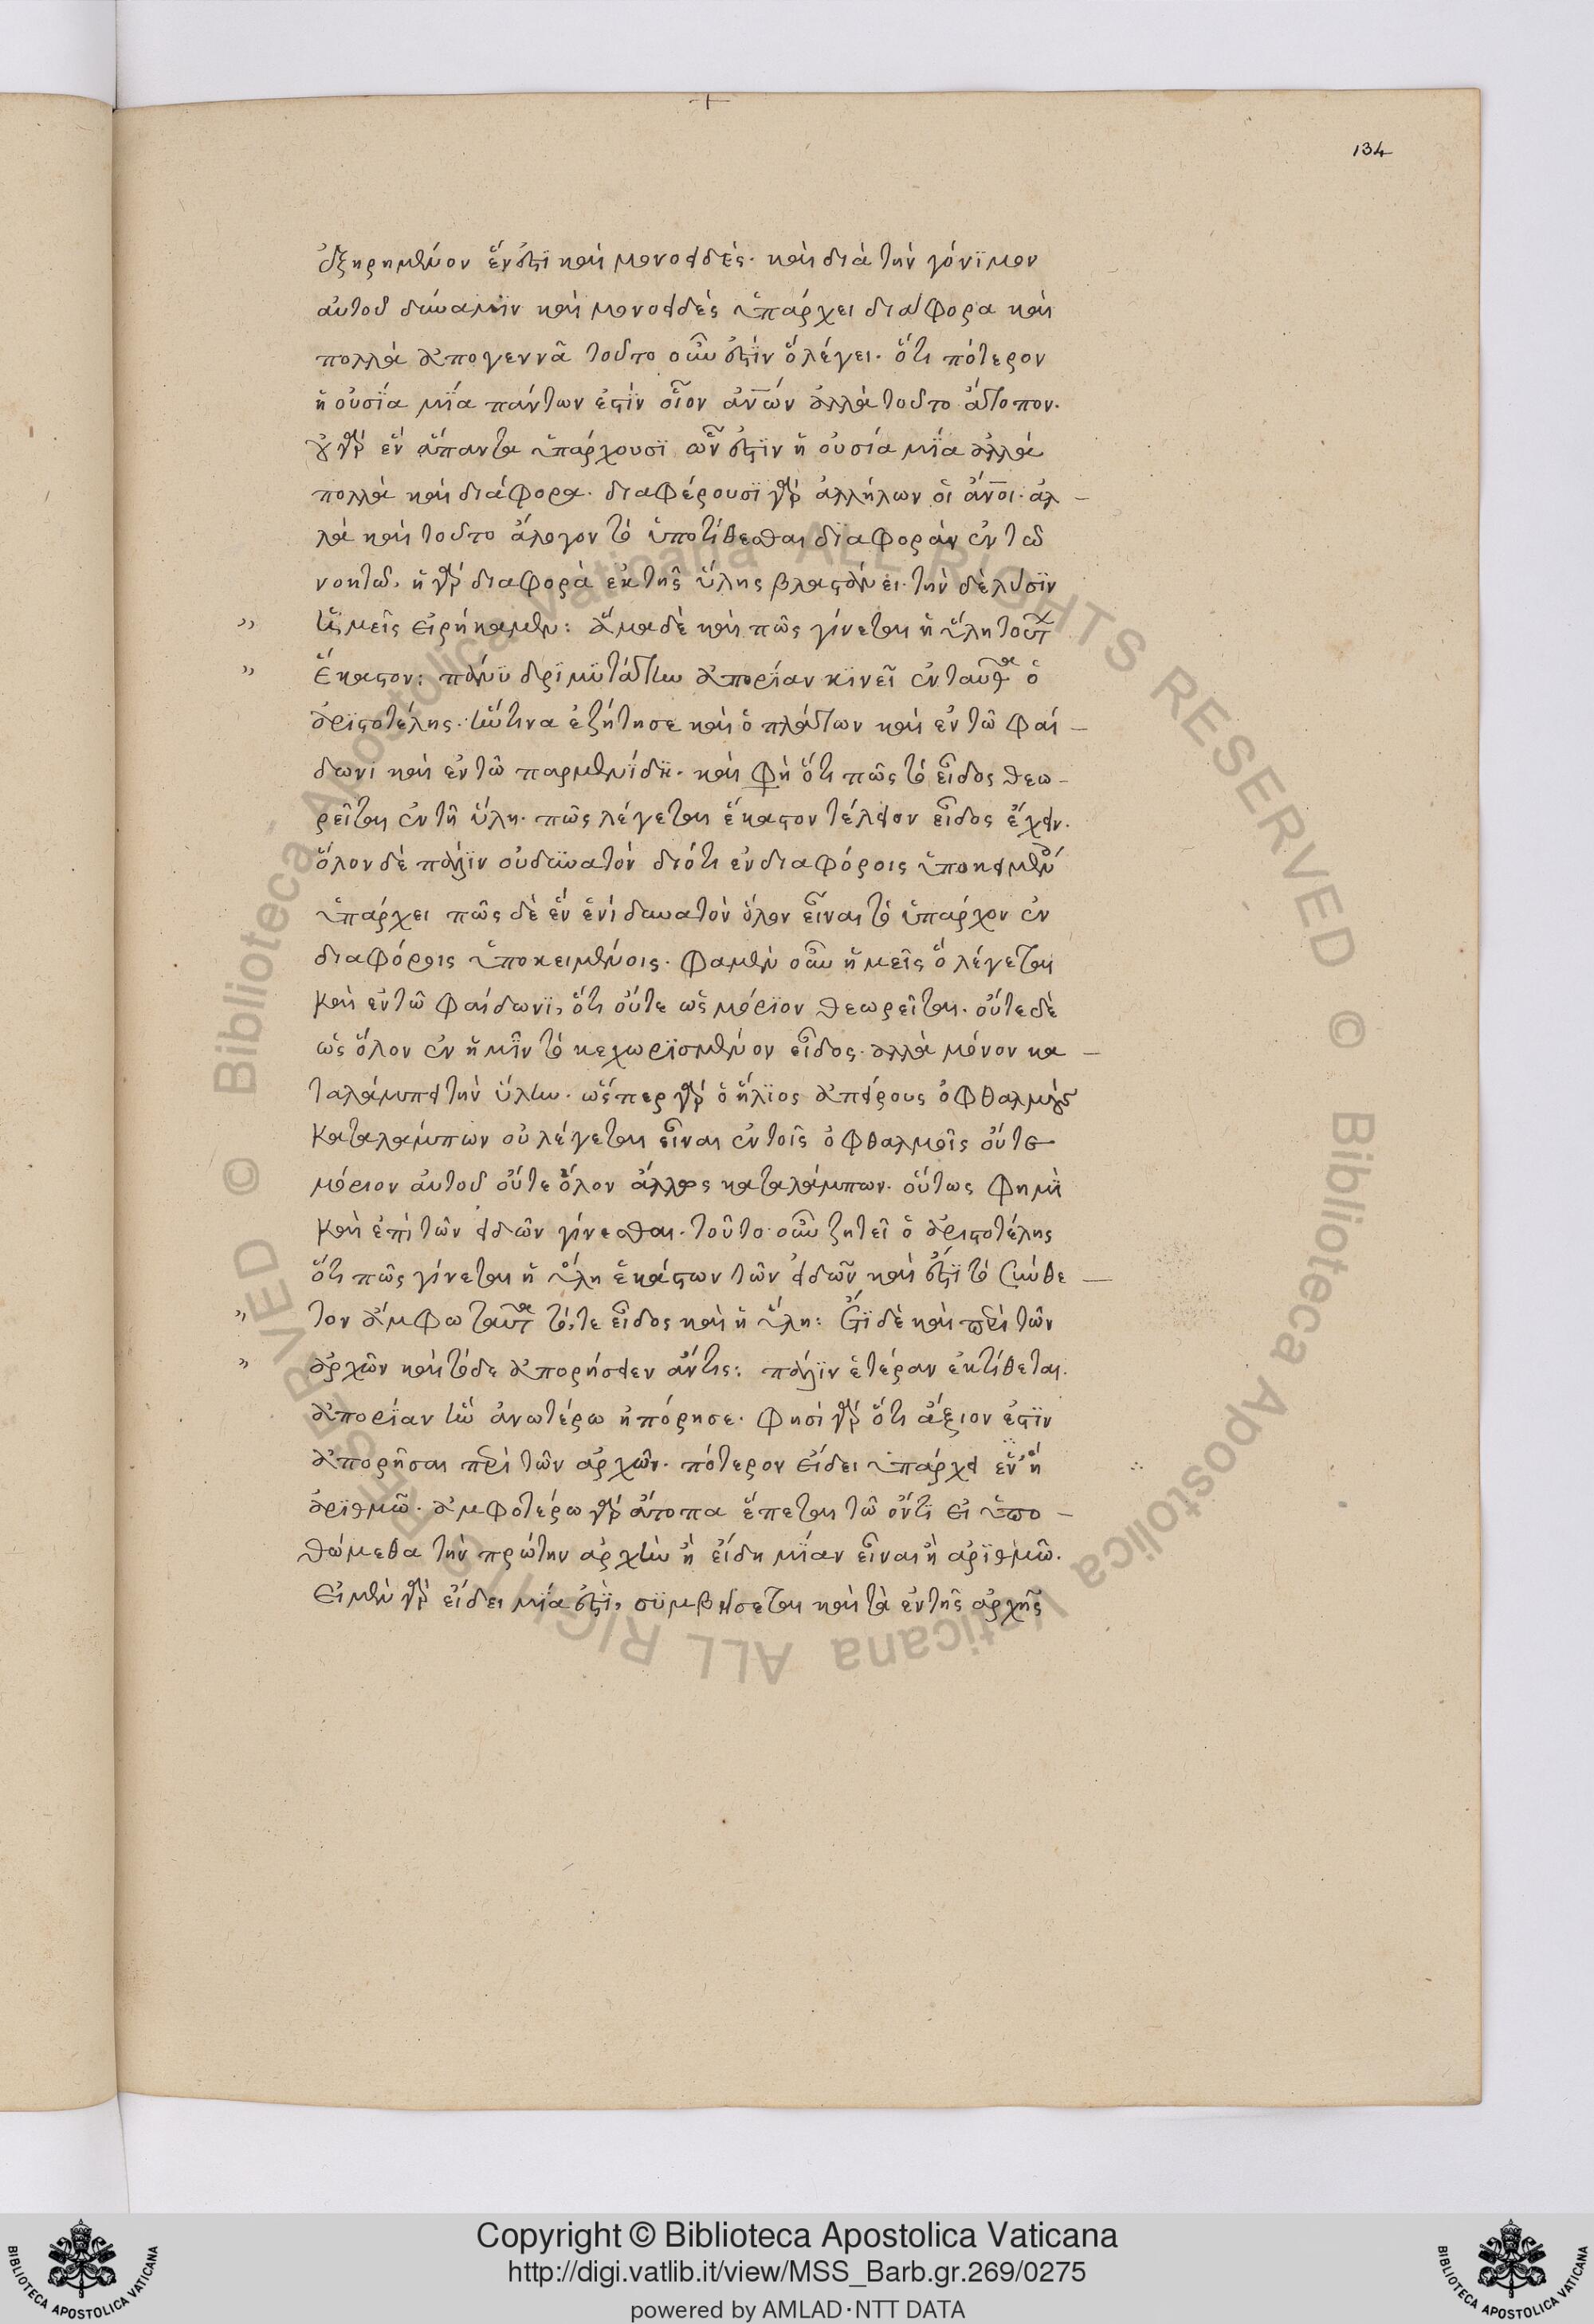 134
ἐξηρημένον ἕν ἐστϊ καὶ μονοειδές· καὶ διὰ τὴν γόνϊμον
αὐτοῦ δύναμϊν καὶ μονοειδὲς ὑπάρχει διάφορα καὶ
πολλὰ ἀπογεννᾶ τοῦτο οὖν ἐστϊν ὃ λέγει· ὅτι πότερον
ἡ οὐσΐα μΐα πάντων ἐστϊν οἷον ἀν̅ων ἀλλὰ τοῦτο ἄτοπον·
οὐ γὰρ ἓν ἅπαντα ὑπάρχουσϊ ὧν ἐστϊν ἡ οὐσία μΐα ἀλλὰ
πολλὰ καὶ διάφορα· διαφέρουσϊ γὰρ ἀλλήλων οἱ ἄν̅οι· ἀλ–
λὰ καὶ τοῦτο ἄλογον τὸ ὑποτίθεσθαι δϊαφορὰν ἐν τῶ
νοητῶ· ἡ γὰρ διαφορὰ ἐκ τῆς ὕλης βλαστάνει· τὴν δὲ λύσϊν
" ἡμεῖς εἰρήκαμεν: ἅμα δὲ καὶ πῶς γίνεται ἡ ὕλη τούτ
" ἕκαστον: πάνυ δρϊμυτάτην ἀπορΐαν κϊνεῖ ἐνταῦθα ὁ
ἀρϊστοτέλης· ἥντινα ἐζήτησε καὶ ὁ πλάτων καὶ ἐν τῶ φαί–
δωνι καὶ ἐν τῶ παρμενΐδη· καὶ φὴ ὅτι πῶς τὸ εἶδος θεω–
ρεῖται ἐν τῆ ὕλη· πῶς λέγεται ἕκαστον τέλειον εἶδος ἔχειν·
ὅλον δὲ πάλϊν οὐ δυνατὸν διότι ἐν διαφόροις ὑποκειμένο
ὑπάρχει πῶς δὲ ἓν ἑνὶ δυνατὸν ὅλον εἶναι τὸ ὑπάρχον ἐν
διαφόροις ὑποκειμένοις· φαμὲν οὖν ἡμεῖς ὃ λέγεται
καὶ ἐν τῶ φαίδωνϊ, ὅτι οὔτε ὡς μόρϊον θεωρεῖται· οὔτε δὲ
ὡς ὅλον ἐν ἡμῖν τὸ κεχωρϊσμένον εἶδος· ἀλλὰ μόνον κα–
ταλάμπει τὴν ὕλην· ὥσπερ γὰρ ὁ ἥλϊος ἀπείρους ὀφθαλμοὺς
καταλάμπων οὐ λέγεται εἶναι ἐν τοῖς ὀφθαλμοῖς οὔτε
μόριον αὐτοῦ οὔτε ὅλον ἄλλως καταλάμπων· οὕτως φημϊ
καὶ ἐπὶ τῶν εἰδῶν γίνεσθαι· τοῦτο οὖν ζητεῖ ὁ ἀριστοτέλης
ὅτι πῶς γίνεται ἡ ὕλη ἑκάστων τῶν εἰδῶν καὶ ἔστϊ τὸ σύνθε–
" τον ἄμφω ταῦτα τό, τε εἶδος καὶ ἡ ὕλη: ἔτϊ δὲ καὶ περὶ τῶν
" ἀρχῶν καὶ τόδε ἀπορήσειεν ἄν τις: πάλϊν ἑτέραν ἐκτίθεται·
ἀπορΐαν ἣν ἀνωτέρω ἠπόρησε· φησὶ γὰρ ὅτι ἄξιον ἐστϊν
ἀπορῆσαι περὶ τῶν ἀρχῶν· πότερον εἴδει ὑπάρχει ἓν ἢ
ἀρϊθμῶ· ἀμφοτέρω γὰρ ἄτοπα ἕπεται τῶ ὄντϊ εἰ ὑπο–
θώμεθα τὴν πρώτην ἀρχὴν ἢ εἴδη μΐαν εἶναι ἢ ἀρϊθμῶ·
εἰ μὲν γὰρ εἴδει μΐα ἐστϊ, συμβήσεται καὶ τὰ ἐν τῆς ἀρχῆς
Copyright © Biblioteca Apostolica Vaticana
http://digi.vatlib.it/view/MSS_Barb.gr.269/0275
powered by AMLAD·NTT DATA
BIBLIOTECA APOSTOLICA VATICANA
BIBLIOTECA APOSTOLICA VATICANA
© Biblioteca Apostolica Vaticana ALL RIGHTS RESERVED © Biblioteca Apostolica Vaticana ALL RIGHTS RESERVED